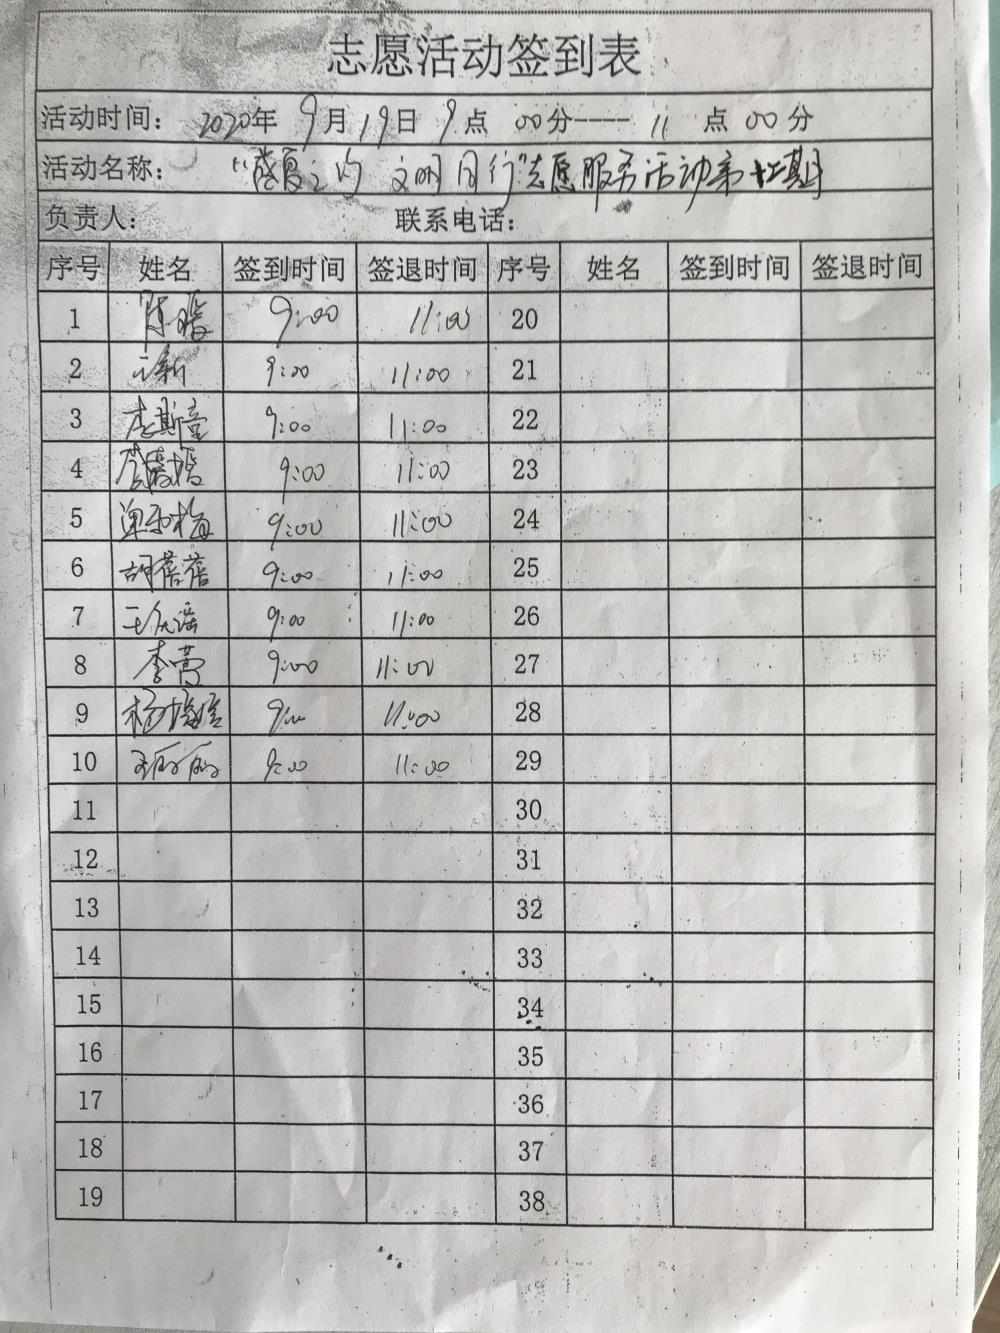 志愿活动签到表
活动时间： 2020年 9月 19日 9点 00分---- 11 点 00 分
活动名称： "盛夏之约 文明同行"志愿服务活动第十二期
负责人： 联系电话：
序号 姓名 签到时间 签退时间 序号 姓名 签到时间 签退时间
1 陈 9:00 11:00 20
2 9:00 11:00 21
3 李斯童 9:00 11:00 22
4 9:00 11:00 23
5 单 梅 9:00 11:00 24
6 胡蓓蓓 9:00 11:00 25
7 王 瑶 9:00 11:00 26
8 李莺 9:00 11:00 27
9 杨 9:00 11:00 28
10 王丽丽 9:00 11:00 29
11 30
12 31
13 32
14 33
15 34
16 35
17 36
18 37
19 38